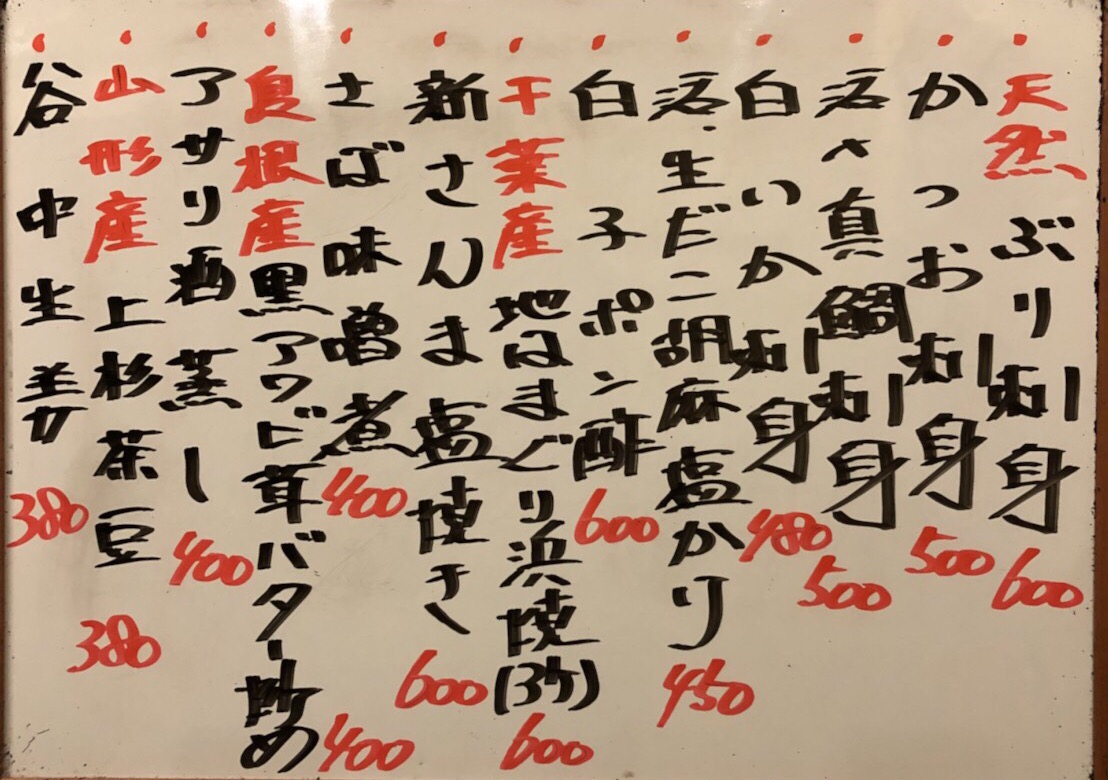 天然 ぶり刺身 600
かつお刺身 500
活〆真鯛刺身 500
白いか刺身 480
活・生だこ胡麻塩かり 450
白子ポン酢 600
千葉産 地はまぐり浜焼(3ケ) 600
新さんま塩焼き 600
さば味噌煮 400
島根産黒アワビ茸バター炒め 400
アサリ酒蒸し 400
山形産 上杉茶豆 380
谷中生姜 380